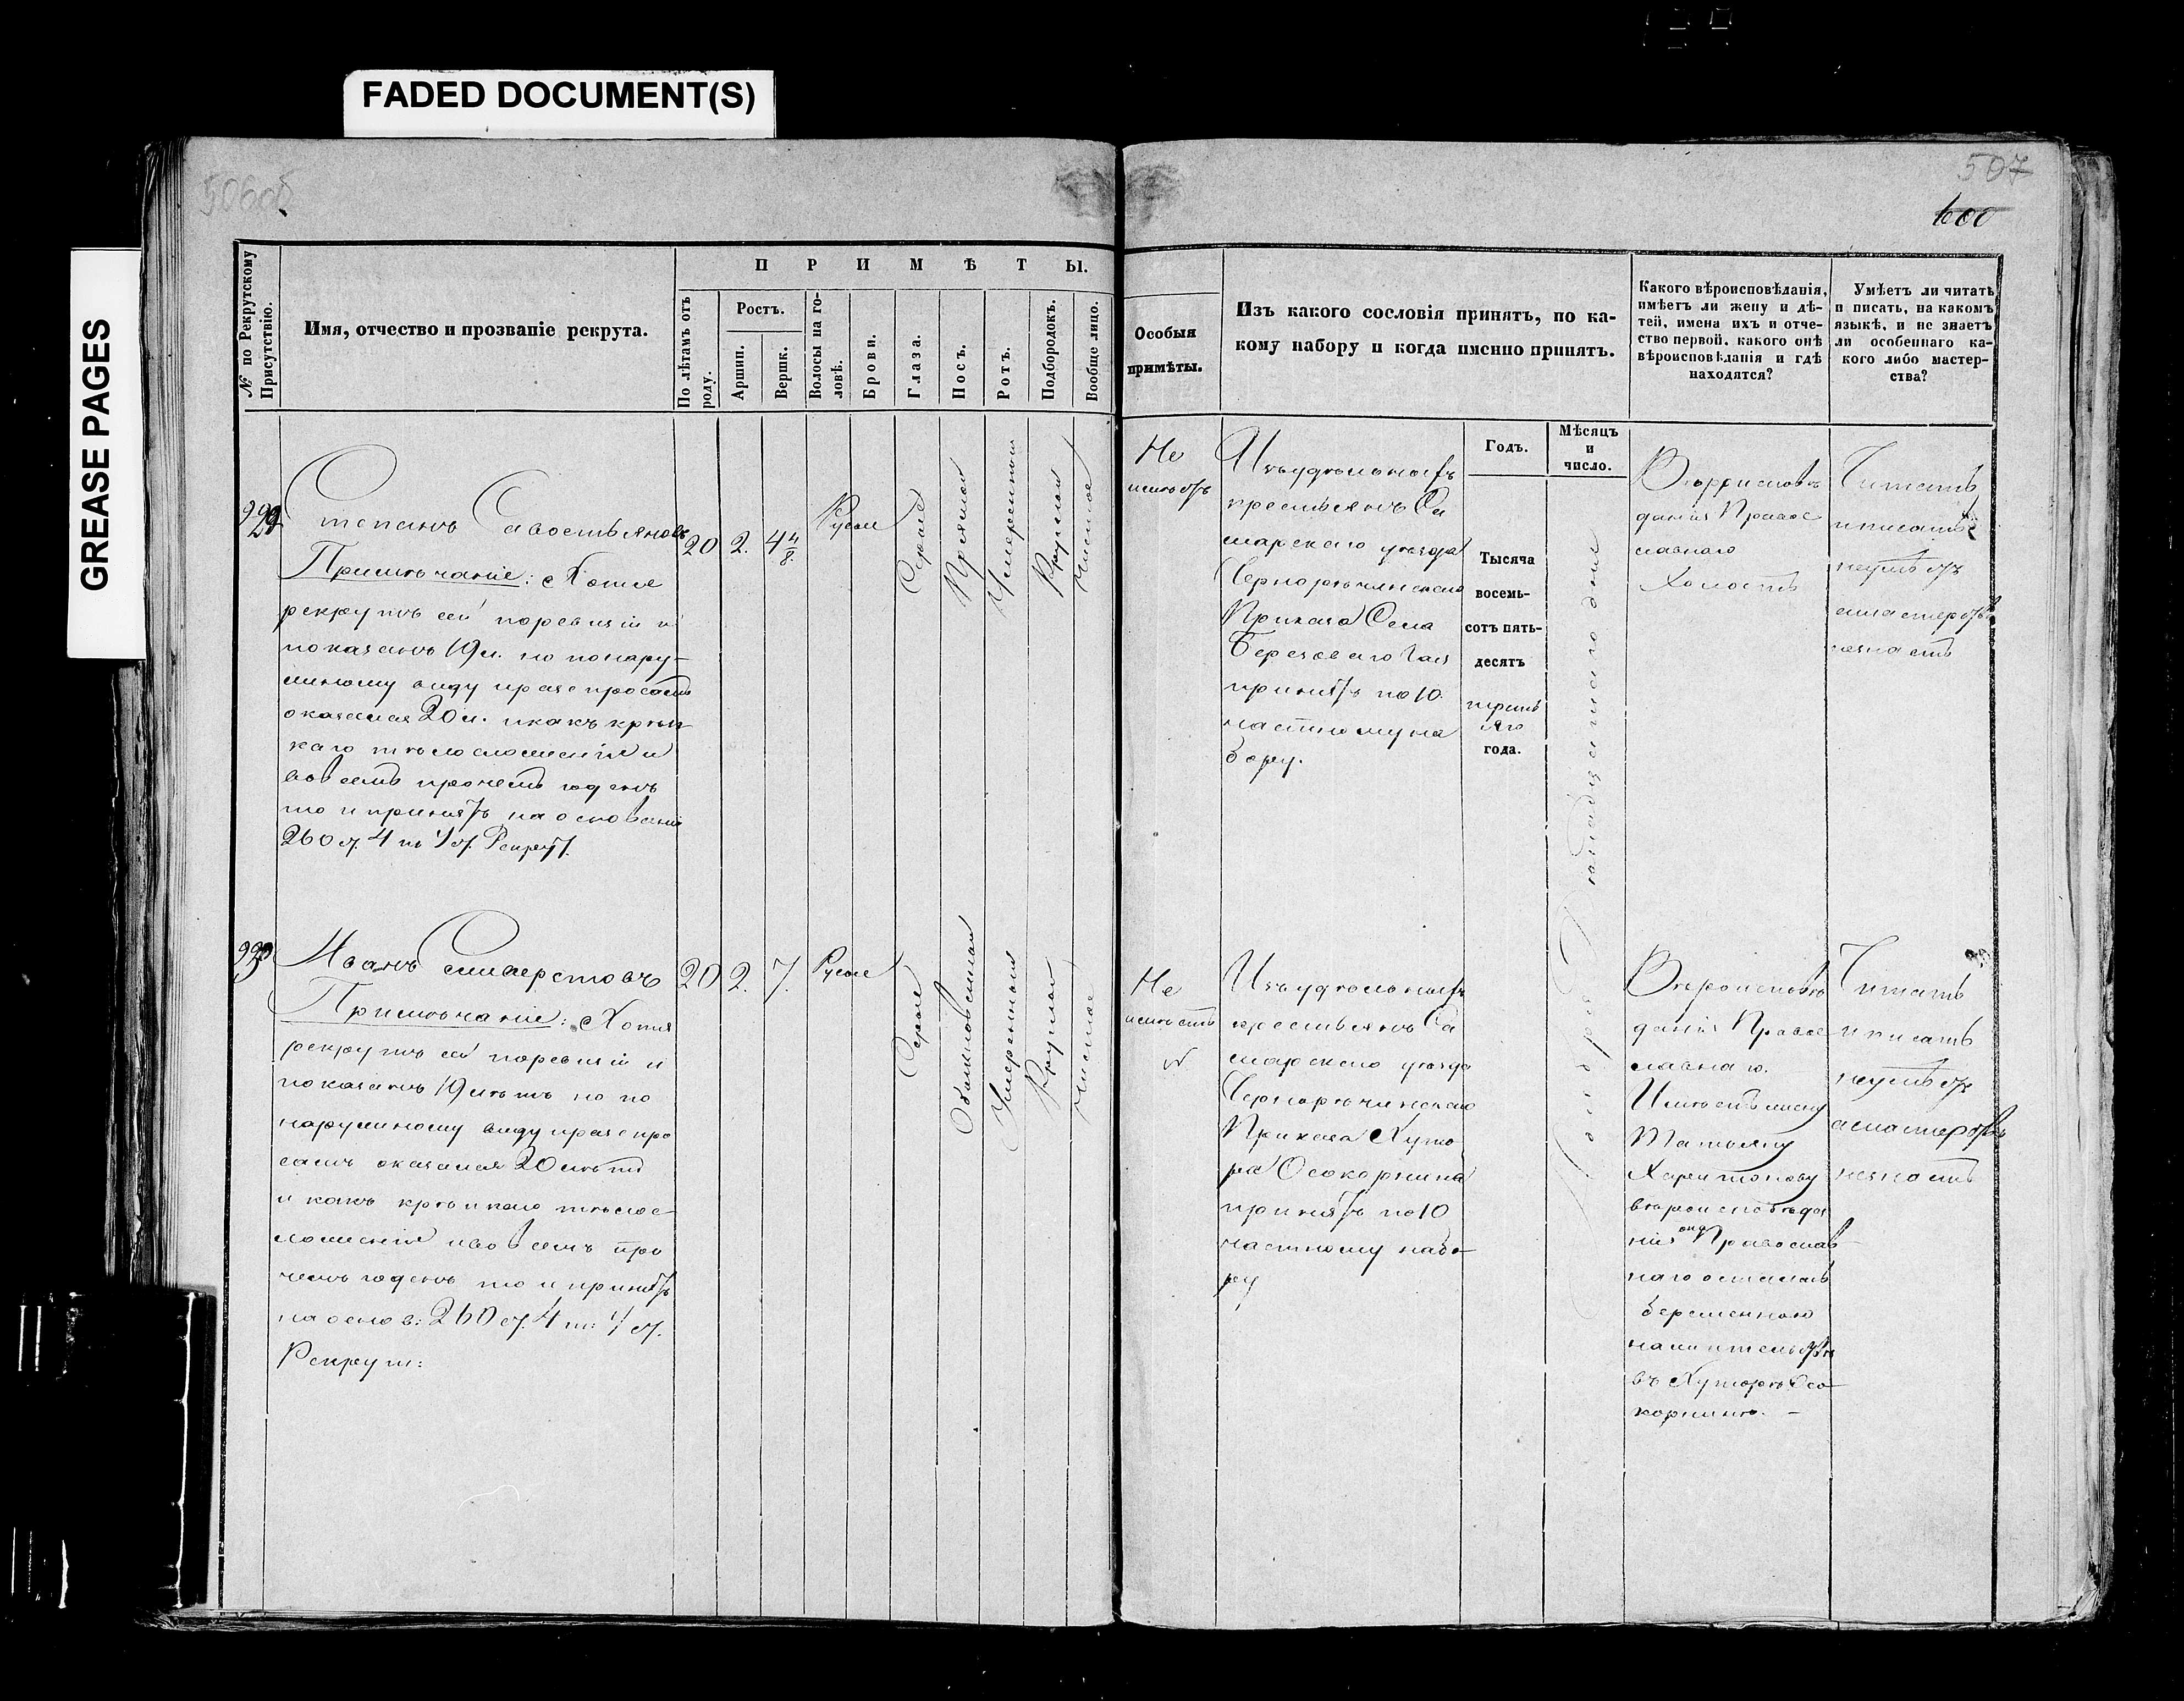 FADED DOCUMENT(S)
GREASE PAGES
506об
507
600
№ по Рекрутскому Присутствію.
Имя, отчество и прозваніе рекрута.
ПРИМѢТЫ.
По лѣтамъ отъ роду.
Ростъ.
Аршин.
Вершк.
Волосы на головѣ.
Брови.
Глаза.
Носъ.
Ротъ.
Подбородокъ.
Вообще лицо.
Особыя
примѣты.
Изъ какого сословія принятъ, по ка-
кому набору и когда именно принятъ.
Какого вѣроисповѣданія,
имѣетъ ли жену и дѣ-
тей, имена ихъ и отче-
ство первой, какого онѣ
вѣроисповѣданія и гдѣ
находятся?
Умѣетъ ли читать
и писать, на какомъ
языкѣ, и не знаетъ
ли особеннаго ка-
кого либо мастер-
ства?
Годъ.
Мѣсяцъ
и
число.
Степанъ Савостьяновъ
Примѣчаніе: Хотя
рекрутъ сей по ревизіи и
показанъ 19 л. но по нару-
жному виду и разспросамъ
оказался 20 л. и какъ крѣп
каго тѣлосложенія и
во всемъ прочемъ годенъ
то и принятъ на основаніи
260 ст. 4 т. Рекрут.
20
2.
4 4/8.
Русые
Серые
Прямой
Умеренный
Круглой
Чистое
Не
имѣетъ
Изъ удѣльныхъ
крестьянъ Са
марскаго уезда
Чернорѣчинскаго
Приказа Села
Березоваго Гая
принятъ по 10.
частному на
бору.
Тысяча
восемь-
сотъ пять-
десятъ
перва
го
года.
Ноября Двадцатаго дня
Вѣроисповѣ
данія Правос
лавнаго
Холостъ
Читать
и писать
неумѣетъ
а мастерствъ
незнаетъ
Иванъ Сильверстовъ
Примѣчаніе: Хотя
рекрутъ сей по ревизіи и
показанъ 19 лѣтъ но по
наружному виду и разспро
самъ оказался 20 лѣтъ
и какъ крѣпкаго тѣлос-
ложенія и во всемъ про
чемъ годенъ то и принятъ
на основ: 260 ст. 4 т.
Рекрут:
20
2.
7.
Русые
Серые
Обыкновенный
Умеренный
Круглой
Чистое
Не
имѣетъ
Изъ удѣльныхъ
крестьянъ Са
марскаго уезда
Чернорѣчинскаго
Приказа Хуто
ра Осокорнина
принятъ по 10
частному набо-
ру
Вѣроисповѣ
данія Правос
лавнаго.
Имѣетъ жену
Татьяну
Харитонову
вѣроисповѣда
нія она Православ
наго осталась
беременною
на жительствѣ
въ Хуторѣ Осо
корнинѣ. –
Читать
и писать
неумѣетъ
а мастерствъ
незнаетъ